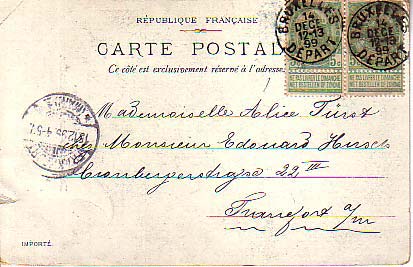 RÉPUBLIQUE FRANÇAISE
CARTE POSTALE
Ce côté est exclusivement réservé à l'adresse
BRUXELLES
14
DECE
12-13
99
DEPART
BRUXELLES
14
DECE
99
DEPART
5c
5c
NE PAS LIVRER LE DIMANCHE
NIET BESTELLEN OP ZONDAG
NE PAS LIVRER LE DIMANCHE
NIET BESTELLEN OP ZONDAG
Mademoiselle Alice Fürst
chez Monsieur Edouard Hirsch
Cronbergerstrasse 22 III
Francfort a/m
IMPORTÉ.